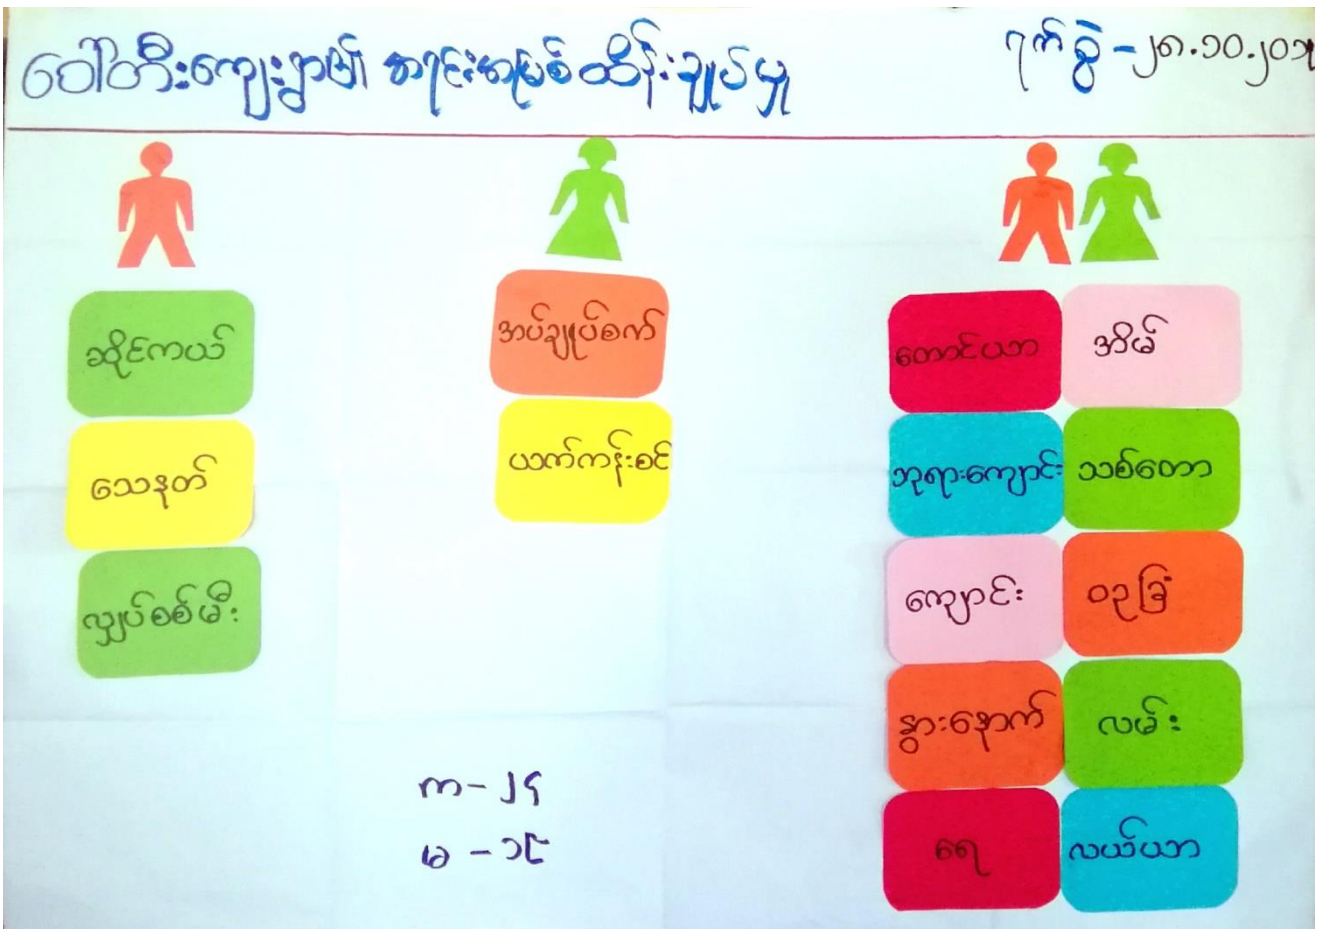 ပေါ်တီးကျေးရွာ၏ အရင်းအမြစ်ထိန်းချုပ်မှု
ရက်စွဲ - ၂၈.၁၀.၂၀၁
ဆိုင်ကယ်
သေနတ်
လျှပ်စစ်မီး
အပ်ချုပ်စက်
ယက်ကန်းစင်
တောင်ယာ
အိမ်
ဘုရားကျောင်း
သစ်တော
ကျောင်း
ဝဥခြံ
နွားနောက်
လမ်း
ရေ
လယ်ယာ
က - ၂၄
မ - ၁၉